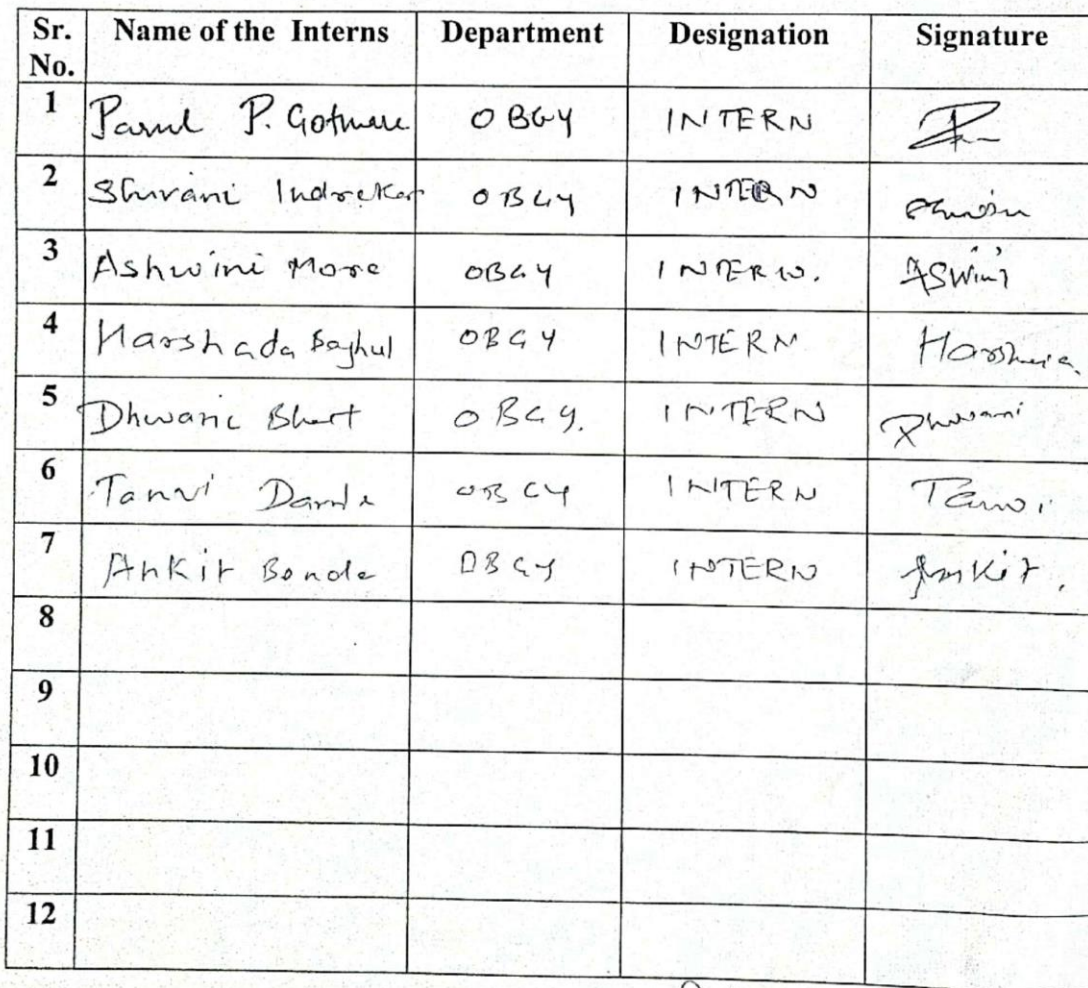 Sr. No. Name of the Interns Department Designation Signature
1 Parul P. Gotmare OBGY INTERN
2 Shivani Indrekar OBGY INTERN
3 Ashwini More OBGY INTERN. ASwini
4 Harshada Baghul OBGY INTERN
5 Dhwani Bhatt OBGY. INTERN Dhwani
6 Tanvi OBGY INTERN Tanvi.
7 Ankit Bonde OBGY INTERN Ankit.
8
9
10
11
12